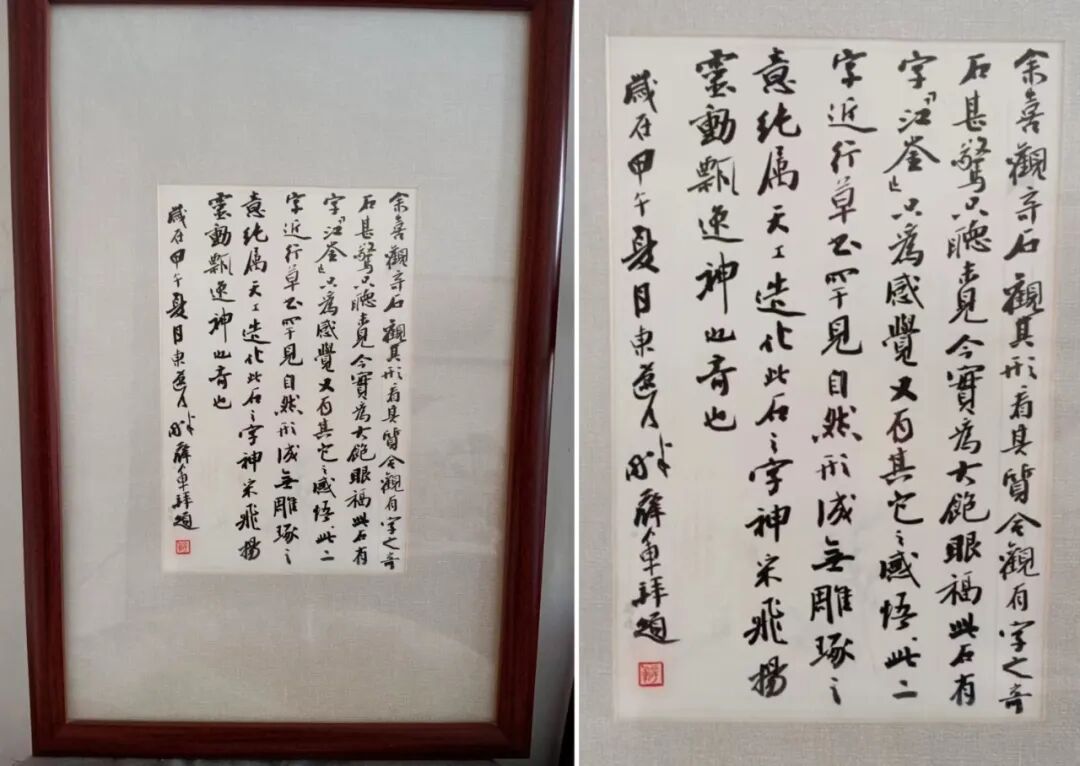 余喜觀奇石觀其形看其質今觀有字之奇
石甚驚只聽未見今實為大飽眼福此石有
字「江」只為感覺又有其它之感悟、此二
字近行草書罕見自然形成無雕琢之
意純属天工造化此石之字神采飛揚
靈動飄逸神也奇也
歲在甲午夏月東薛軍拜題
余喜觀奇石觀其形看其質今觀有字之奇
石甚驚只聽未見今實為大飽眼福此石有
字「江」只為感覺又有其它之感悟、此二
字近行草書罕見自然形成無雕琢之
意純属天工造化此石之字神采飛揚
靈動飄逸神也奇也
歲在甲午夏月東薛軍拜題